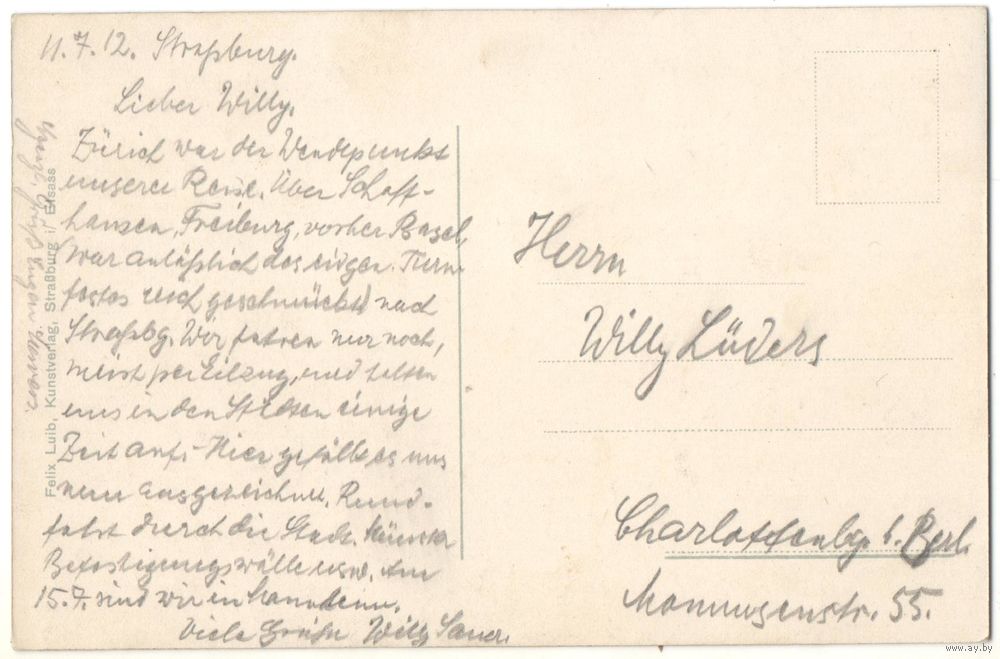 11.7.12. Straßburg.
Lieber Willy.
Zürich war der Wendepunkt
unserer Reise. Über Schaff-
hausen, Freiburg, vorher Basel,
war anläßlich des eidgen. Turn-
festes reich geschmückt, nach
Straßbg. Wir fahren nur noch,
meist per Eilzug, und halten
uns in den Städten einige
Zeit auf. Hier gefällt es uns
ausgezeichnet. Rund-
fahrt durch die Stadt. Münster
Befestigungswälle usw. Am
15.7. sind wir in Mannheim.
Viele Grüße Willy Sauer.
Herrn
Willy Lüders
Charlottenbg b. Berl.
Mommsenstr. 55.
Felix Luib, Kunstverlag, Straßburg i. Elsass
Gruß
www.ay.by